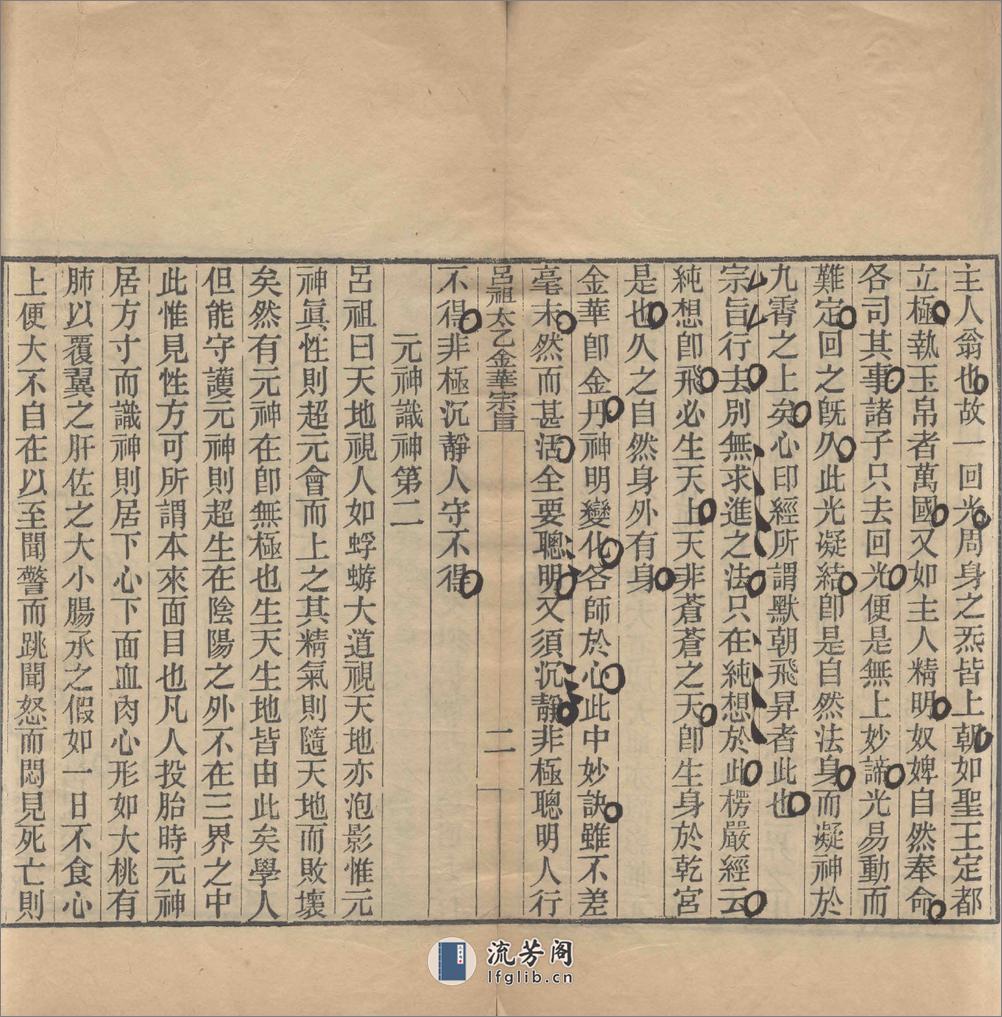 主人翁也故一回光周身之炁皆上朝如聖王定都
立極執玉帛者萬國又如主人精明奴婢自然奉命
各司其事諸子只去回光便是無上妙諦光易動而
難定回之旣久此光凝結卽是自然法身而凝神於
九霄之上矣心印經所謂默朝飛昇者此也
宗旨行去別無求進之法只在純想於此楞嚴經云
純想卽飛必生天上天非蒼蒼之天卽生身於乾宮
是也久之自然身外有身
金華卽金丹神明變化各師於心此中妙訣雖不差
毫末然而甚活全要聰明又須沉靜非極聰明人行
呂祖太乙金華宗旨
二
不得非極沉靜人守不得
元神識神第二
呂祖曰天地視人如蜉蝣大道視天地亦泡影惟元
神眞性則超元會而上之其精氣則隨天地而敗壞
矣然有元神在卽無極也生天生地皆由此矣學人
但能守護元神則超生在陰陽之外不在三界之中
此惟見性方可所謂本來面目也凡人投胎時元神
居方寸而識神則居下心下面血肉心形如大桃有
肺以覆翼之肝佐之大小腸承之假如一日不食心
上便大不自在以至聞警而跳聞怒而悶見死亡則
流芳阁
lfglib.cn